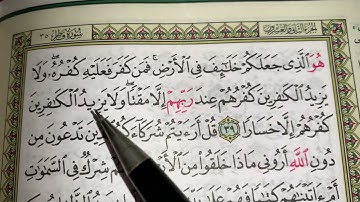 سورة فاطر ٣٥
هُوَ ٱلَّذِى جَعَلَكُمْ خَلَـٰٓئِفَ فِى ٱلْأَرْضِ ۚ فَمَن كَفَرَ فَعَلَيْهِ كُفْرُهُۥ ۖ وَلَا
يَزِيدُ ٱلْكَـٰفِرِينَ كُفْرُهُمْ عِندَ رَبِّهِمْ إِلَّا مَقْتًا ۖ وَلَا يَزِيدُ ٱلْكَـٰفِرِينَ
كُفْرُهُمْ إِلَّا خَسَارًا ٣٩ قُلْ أَرَءَيْتُمْ شُرَكَآءَكُمُ تَدْعُونَ مِن
دُونِ ٱللَّهِ أَرُونِى مَاذَا خَلَقُوا۟ مِنَ شِرْكٌ فِى ٱلسَّمَـٰوَٰتِ